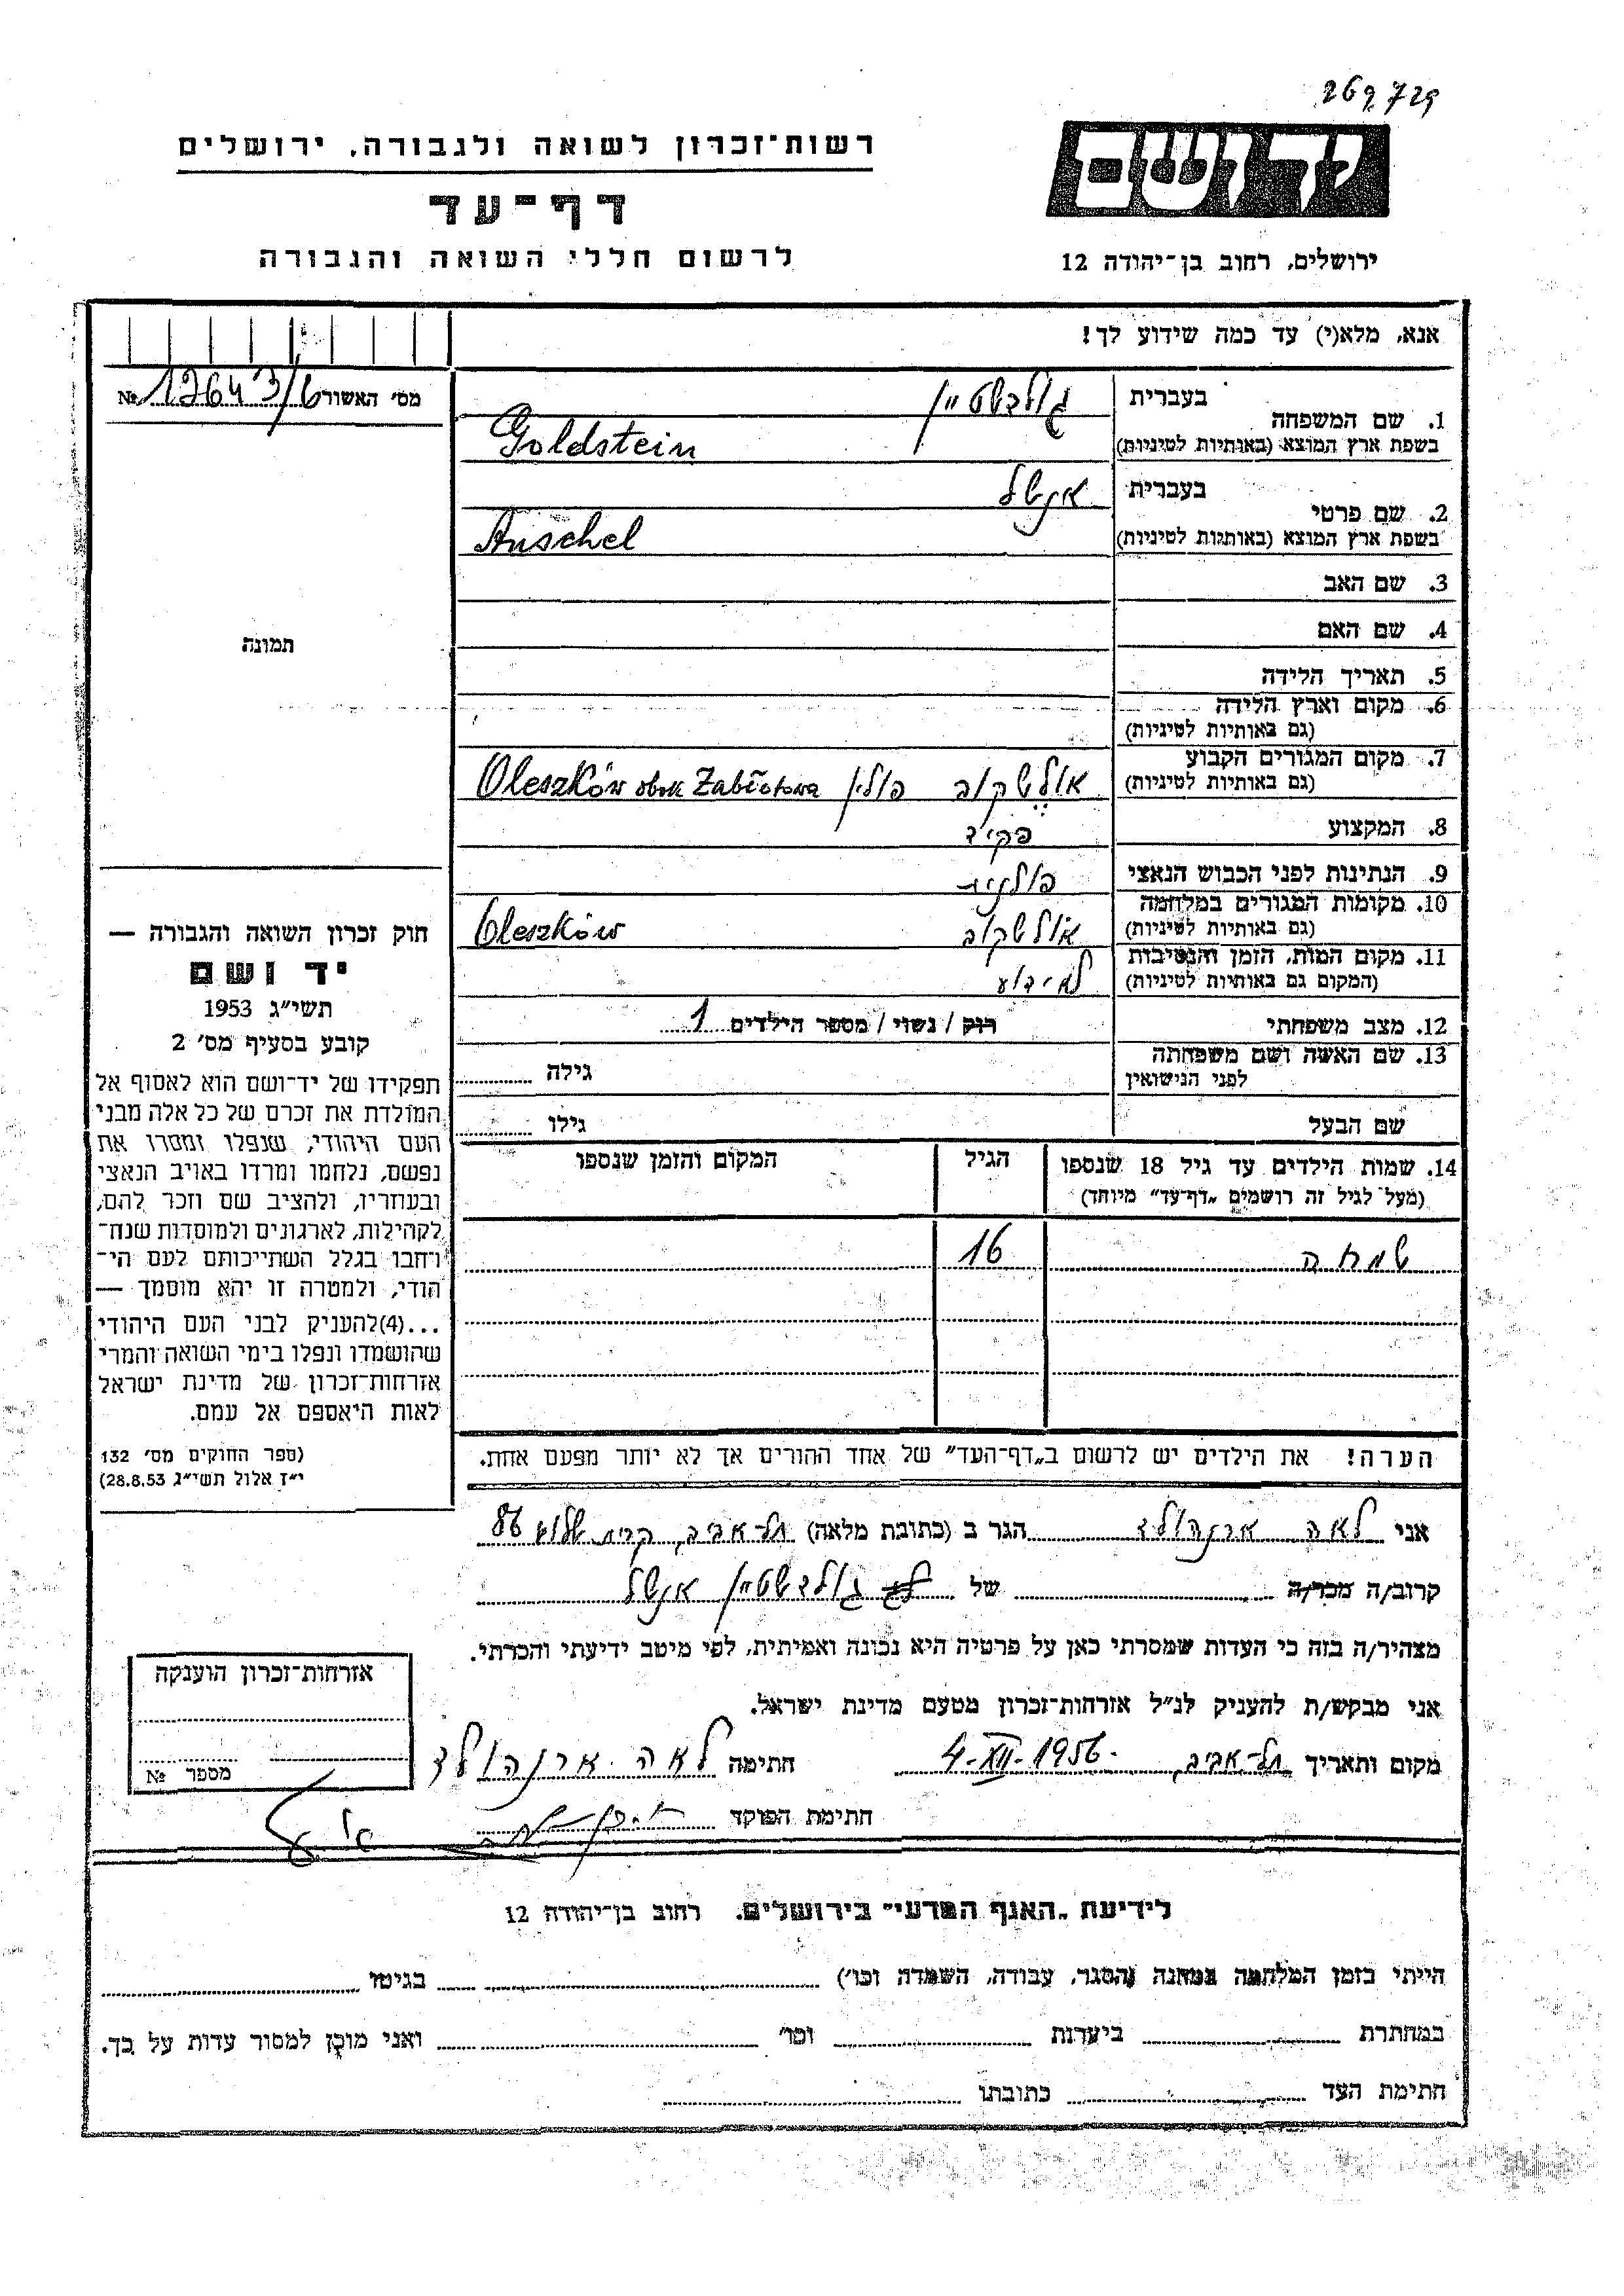 269729
רשות־זכרון לשואה ולגבורה, ירושלים
יד ושם
דף־עד
לרשום חללי השואה והגבורה
ירושלים, רחוב בן־יהודה 12
אנא, מלא(י) עד כמה שידוע לך!
מס' האשור № 12643/6
1. שם המשפחה
בעברית גולדשטיין
בשפת ארץ המוצא (באותיות לטיניות) Goldstein
2. שם פרטי
בעברית אנשל
בשפת ארץ המוצא (באותיות לטיניות) Anschel
3. שם האב
4. שם האם
תמונה
5. תאריך הלידה
6. מקום וארץ הלידה
(גם באותיות לטיניות)
7. מקום המגורים הקבוע אולשקוב פולין Oleszków obok Zabłotowa
(גם באותיות לטיניות)
8. המקצוע פקיד
9. הנתינות לפני הכבוש הנאצי פולנית
10. מקומות המגורים במלחמה אולשקוב Oleszków
(גם באותיות לטיניות)
11. מקום המות, הזמן והנסיבות לא ידוע
(המקום גם באותיות לטיניות)
12. מצב משפחתי רוק / נשוי / מספר הילדים 1
13. שם האשה ושם משפחתה גילה
לפני הנישואין
שם הבעל גילו
14. שמות הילדים עד גיל 18 שנספו הגיל המקום והזמן שנספו
(מעל לגיל זה רושמים „דף־עד" מיוחד)
שמחה 16
הערה! את הילדים יש לרשום ב„דף־העד" של אחד ההורים אך לא יותר מפעם אחת.
חוק זכרון השואה והגבורה —
יד ושם
תשי"ג 1953
קובע בסעיף מס' 2
תפקידו של יד־ושם הוא לאסוף אל
המולדת את זכרם של כל אלה מבני
העם היהודי, שנפלו ומסרו את
נפשם, נלחמו ומרדו באויב הנאצי
ובעוזריו, ולהציב שם וזכר להם,
לקהילות, לארגונים ולמוסדות שנח־
רבו בגלל השתייכותם לעם הי־
הודי, ולמטרה זו יהא מוסמך —
...(4)להעניק לבני העם היהודי
שהושמדו ונפלו בימי השואה והמרי
אזרחות־זכרון של מדינת ישראל
לאות היאספם אל עמם.
(ספר החוקים מס' 132
י"ז אלול תשי"ג 28.8.53)
אני לאה ארנהולד הגר ב (כתובת מלאה) תל־אביב, קרית שלום 86
קרוב/ה מכר/ה של גולדשטיין אנשל
מצהיר/ה בזה כי העדות שמסרתי כאן על פרטיה היא נכונה ואמיתית, לפי מיטב ידיעתי והכרתי.
אני מבקש/ת להעניק לנ"ל אזרחות־זכרון מטעם מדינת ישראל.
מקום ותאריך תל־אביב, 4-XII-1956 חתימה לאה ארנהולד
חתימת הפוקד
אזרחות־זכרון הוענקה
מספר №
לידיעת „האגף המדעי" בירושלים, רחוב בן־יהודה 12
הייתי בזמן המלחמה במחנה (הסגר, עבודה, השמדה וכו') בגיטו
במחתרת ביערות וכו' ואני מוכן למסור עדות על כך.
חתימת העד כתובתו